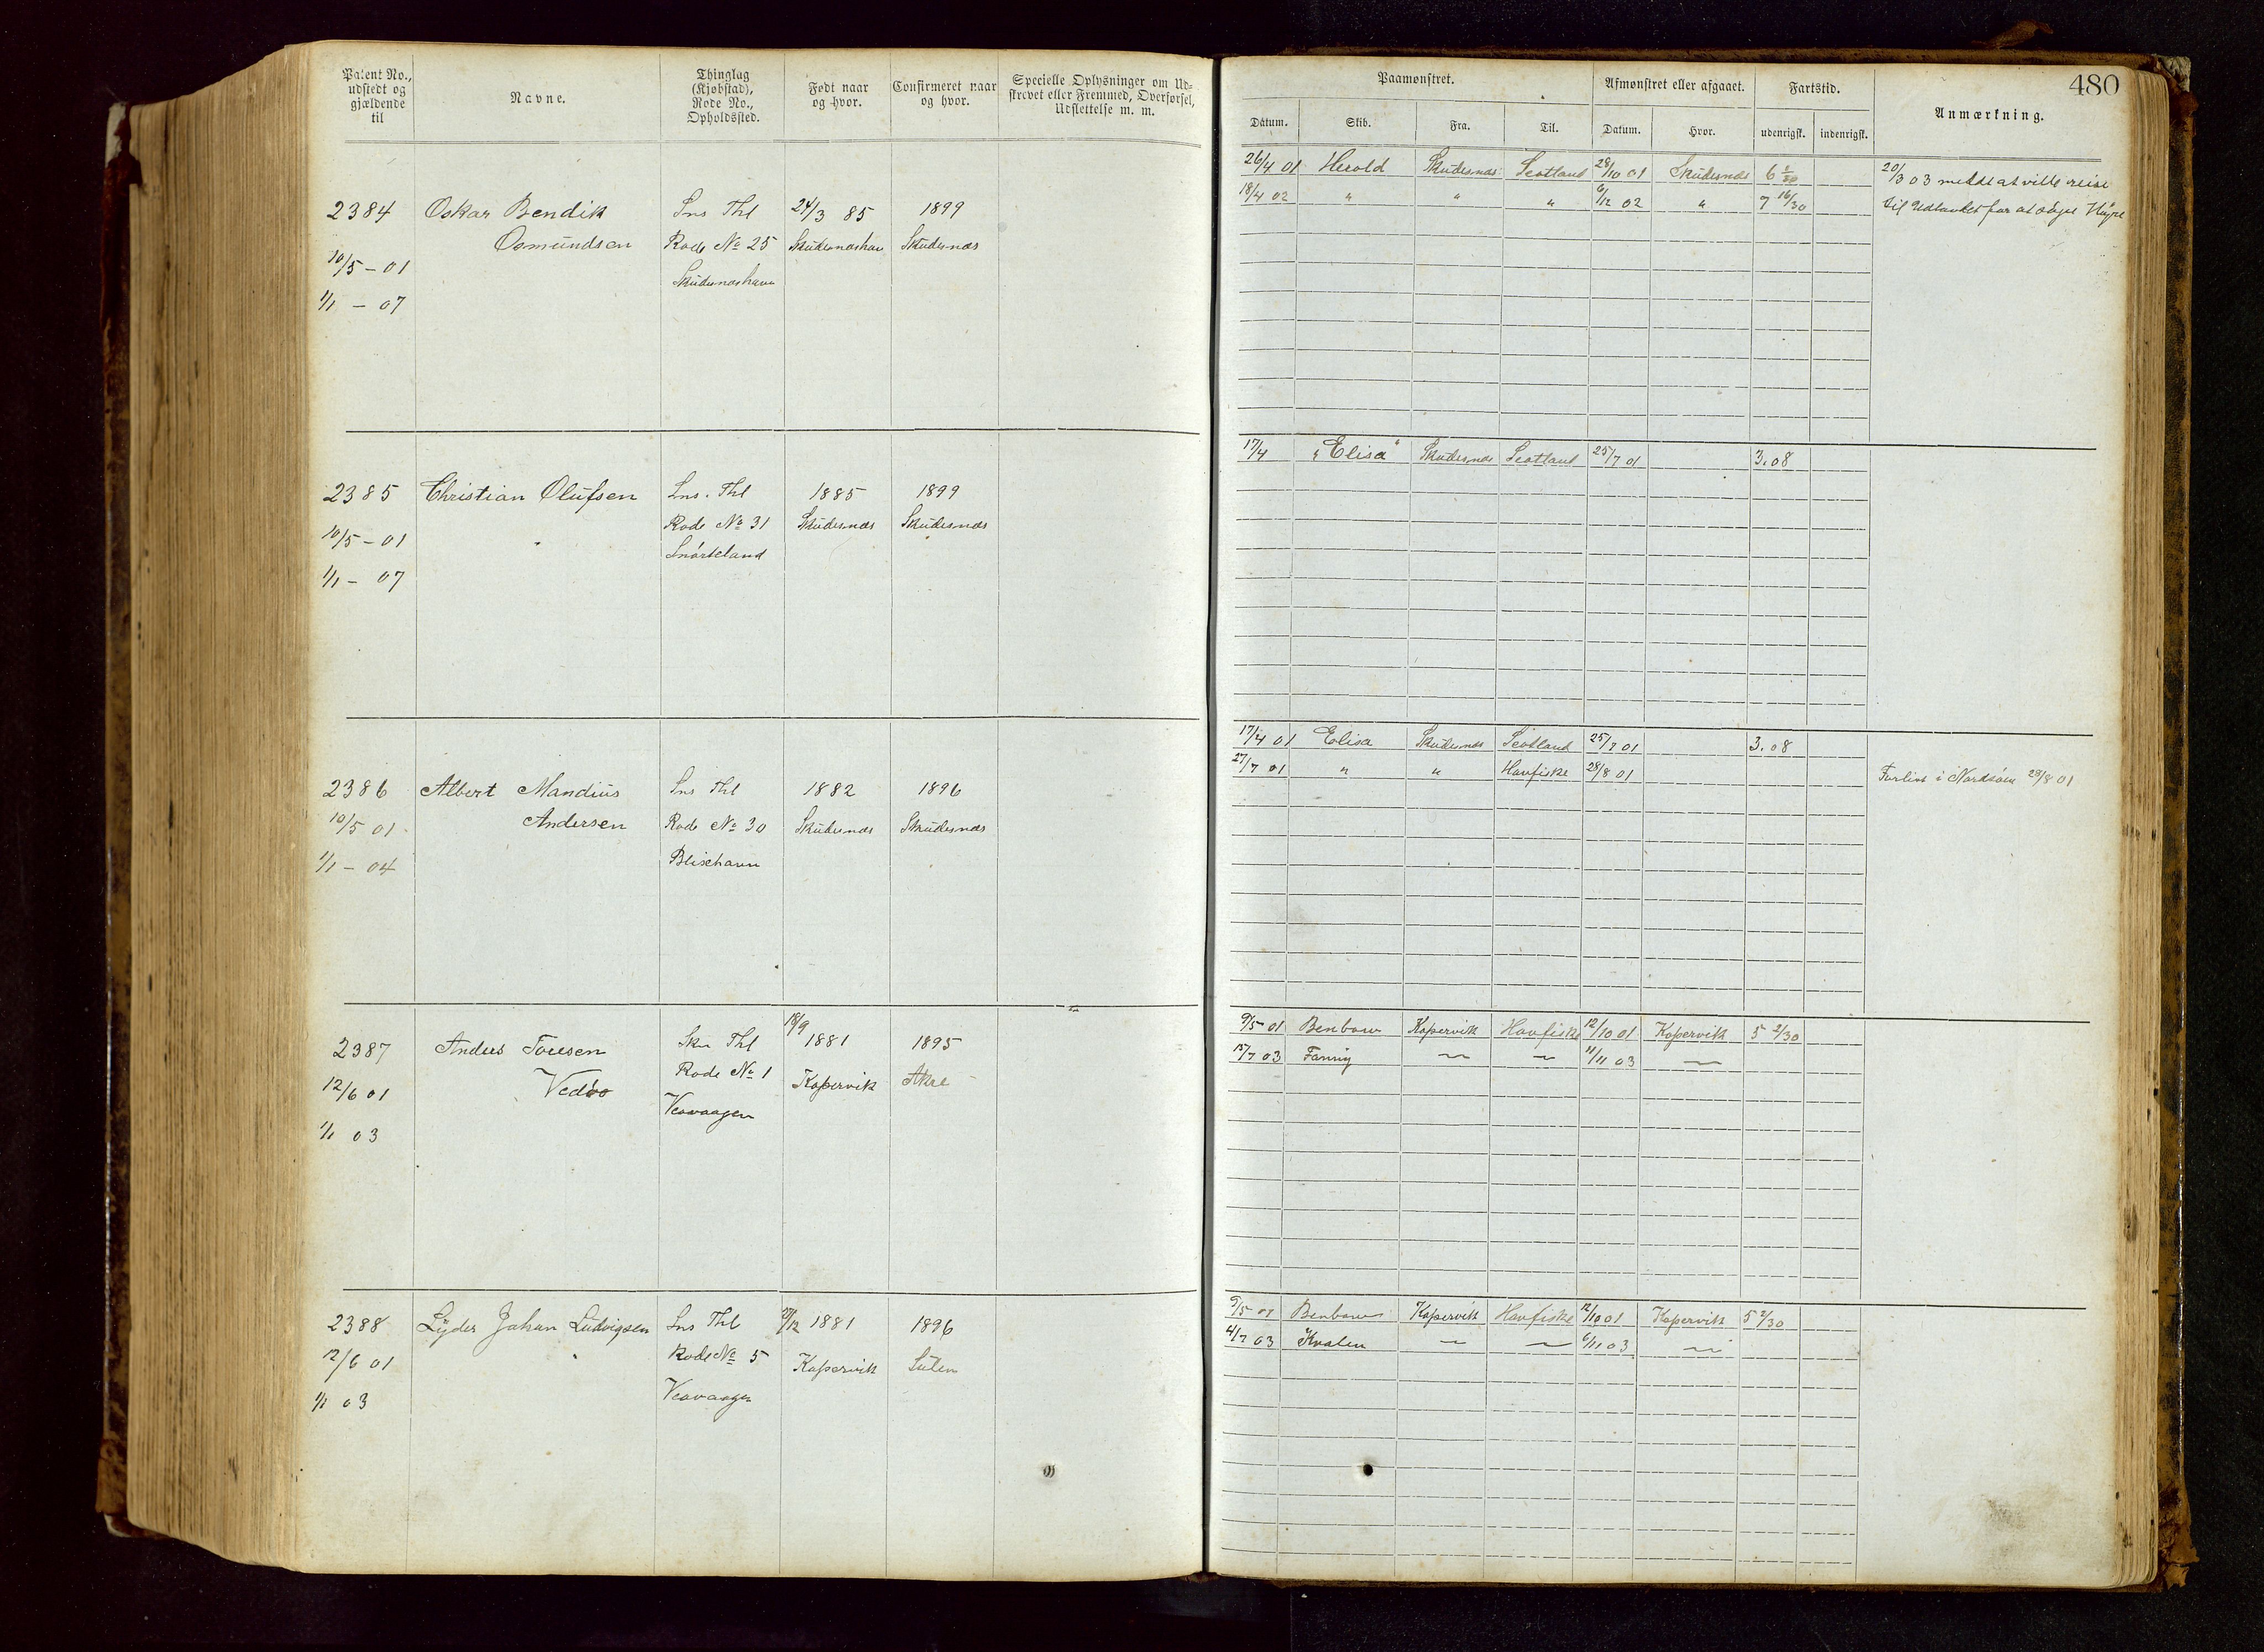 Patent No.,
udstedt og
gjældende
til
Navne.
Thinglag
(Kjøbstad),
Rode No.,
Opholdssted.
Født naar
og hvor.
Confirmeret naar
og hvor.
Specielle Oplysninger om Ud-
skrevet eller Fremmed, Overførsel,
Udslettelse m. m.
2384 Oskar Bendik Sns Thl 24/3 85 1899
Osmundsen Rode No 25 Skudesneshavn Skudesnæs
10/5 - 01 Skudesneshavn
1/1 - 07
2385 Christian Olufsen Sns. Thl 1885 1899
10/5 - 01 Rode No 31 Skudesnæs Skudesnæs
Snørteland
1/1 - 07
2386 Albert Mandius Sns Thl 1882 1896
10/5 01 Andersen Rode No 30 Skudesnæs Skudesnæs
1/1 - 04 Blixhavn
2387 Anders Toresen Skn Thl 18/9 1881 1895
12/6 01 Vedøe Rode No 1 Kopervik Akre
1/1 03 Veavaagen
2388 Lyder Johan Ludvigsen Sns Thl 1881 1896
12/6 01 Rode No 5 Kopervik
1/1 03 Veavaagen
480
Paamønstret.
Afmønstret eller afgaaet.
Fartstid.
Anmærkning.
Datum. Skib. Fra. Til. Datum. Hvor. udenrigsk. indenrigsk.
26/4 01 Herold Skudesnæs Scotland 28/10 01 Skudesnæs 6 2/30 20/3 03 meldt at ville reise
18/4 02 " " " 6/12 02 " 7 16/30 til Udlandet for at søge Hyre
17/4 "Elisa" Skudesnæs Scotland 25/7 01 3.08
17/4 01 Elisa Skudesnæs Scotland 25/7 01 3.08
27/7 01 " " Havfiske 28/8 01 Forlist i Nordsøen 28/8 01
9/5 01 Benbow Kopervik Havfiske 12/10 01 Kopervik 5 2/30
15/7 03 Fanny — — 11/11 03 —
9/5 01 Benbow Kopervik Havfiske 12/10 01 Kopervik 5 2/30
4/7 03 Kvalen — — 6/11 03 —